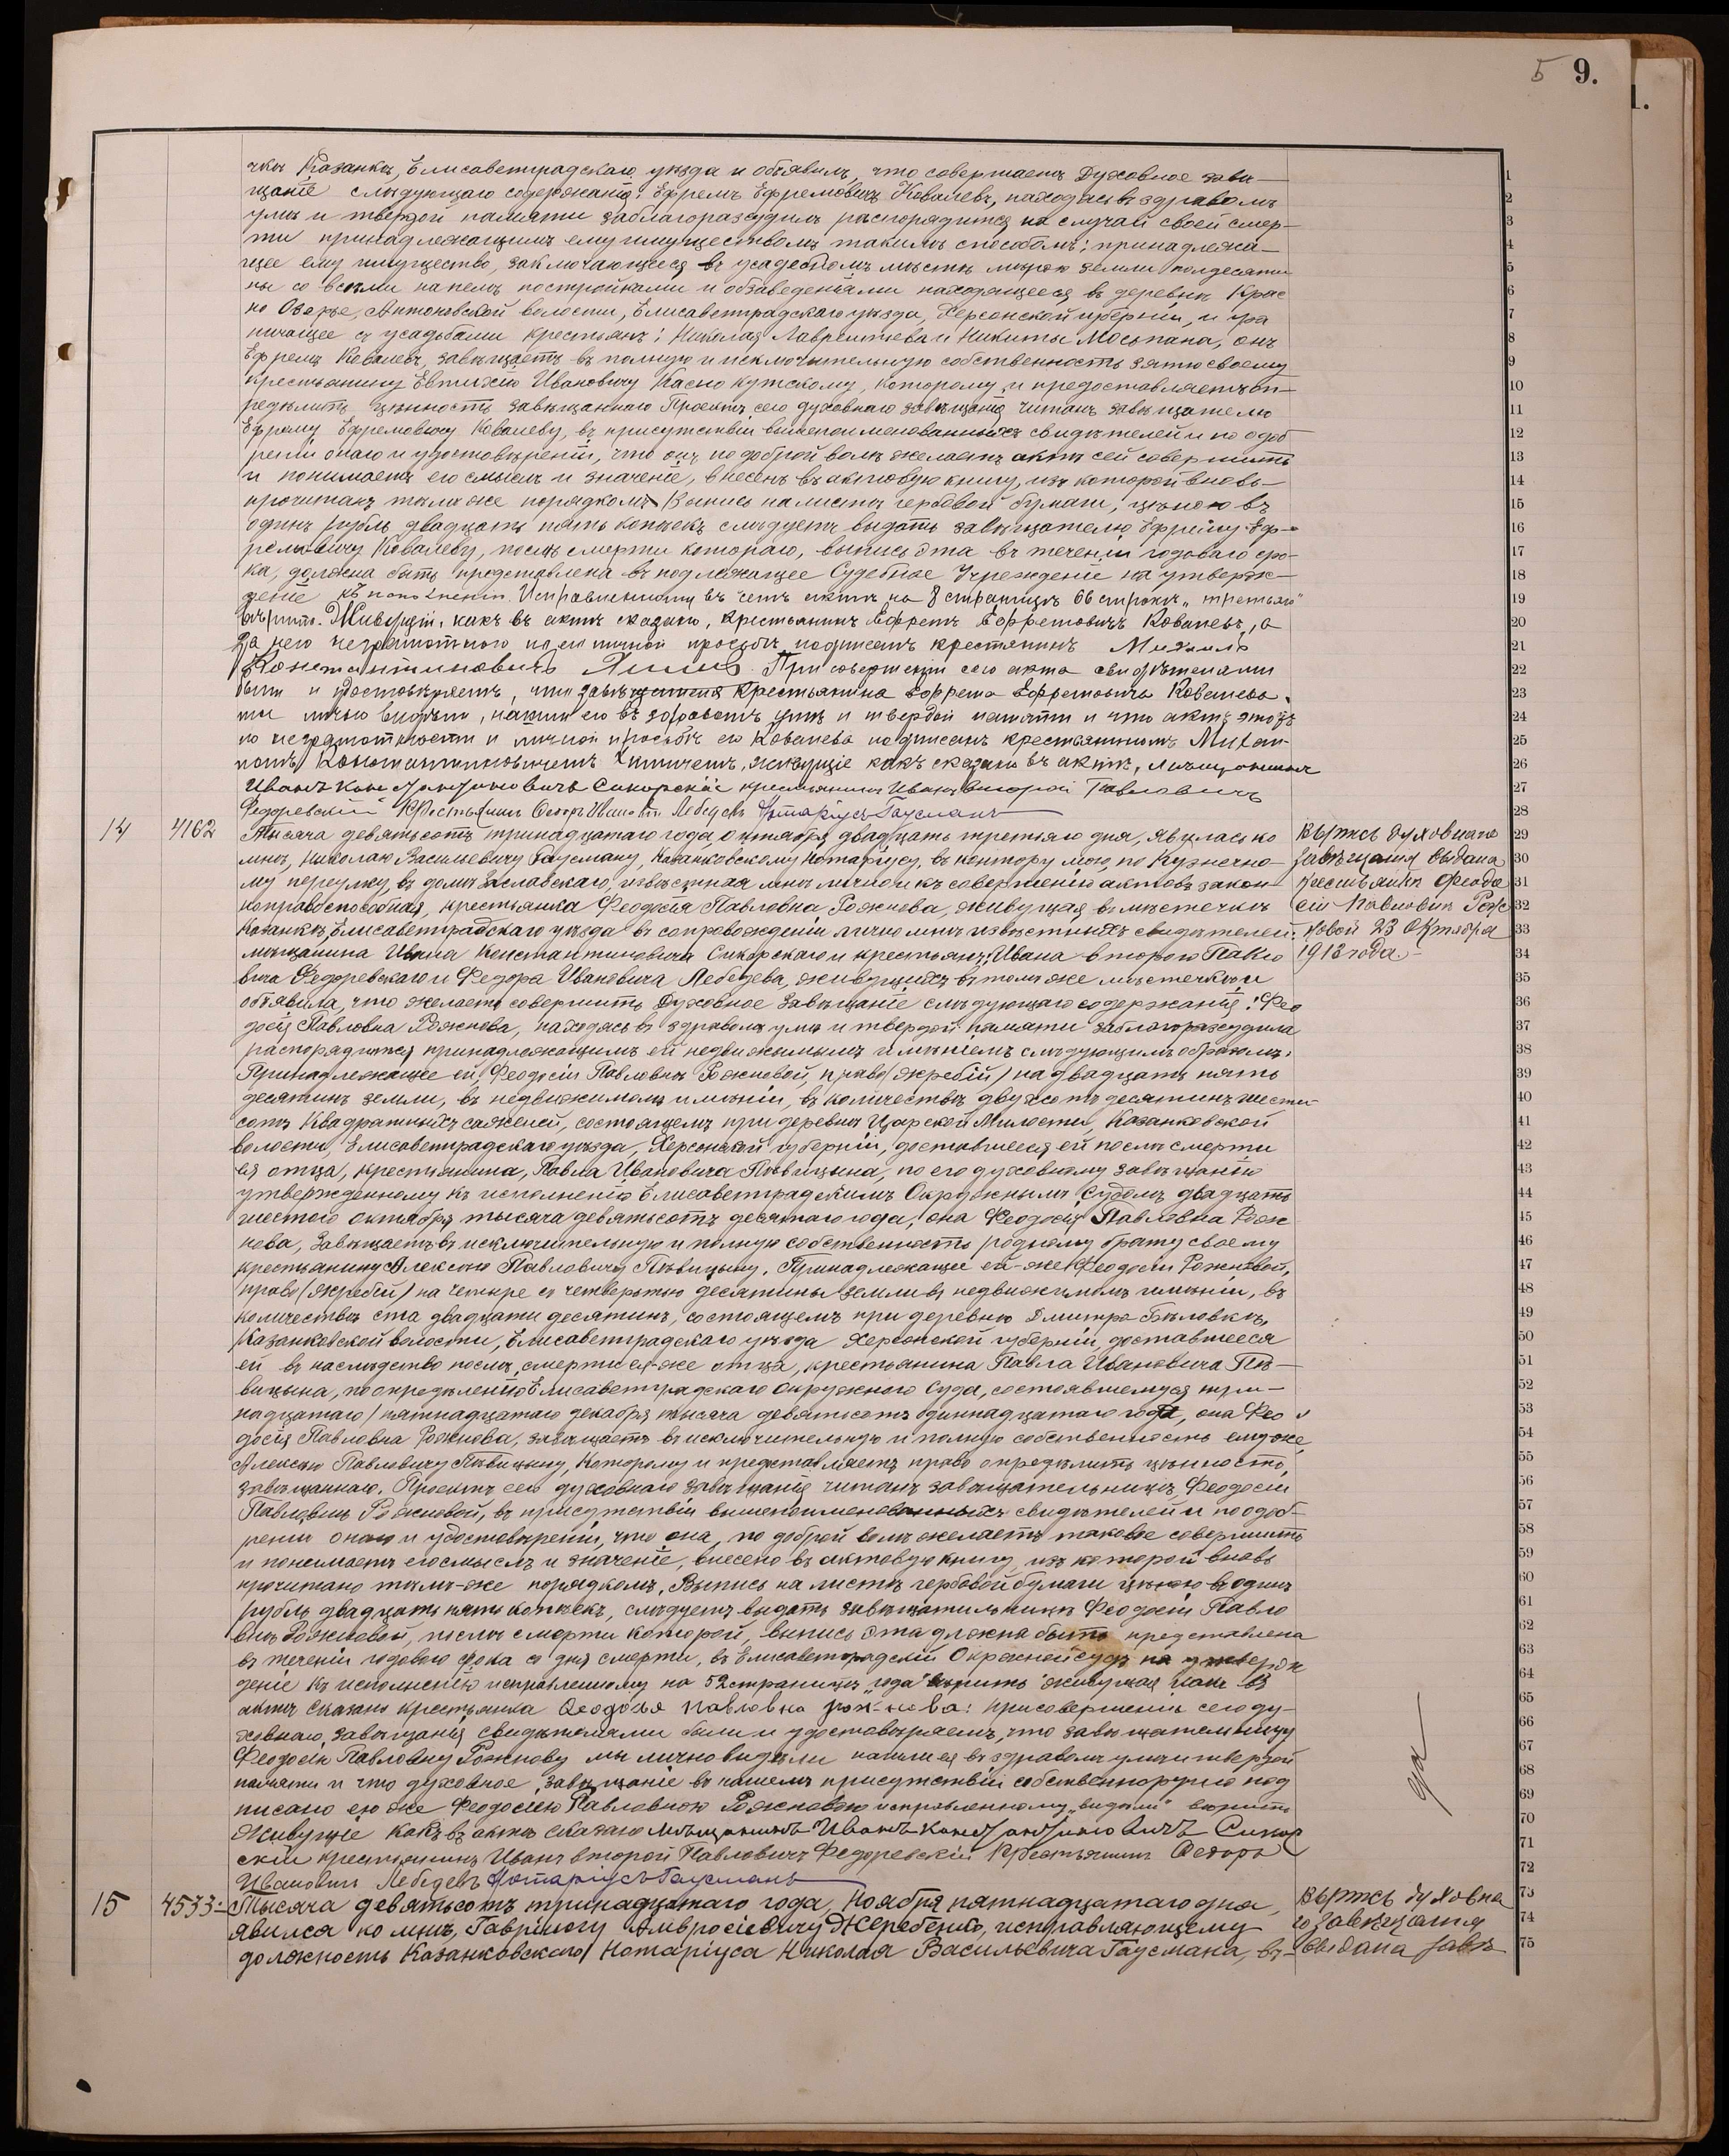 5 9.
1.
чкѣ Казанкѣ, Елисаветградскаго уѣзда и объявилъ, что совершаетъ Духовное завѣ-
щаніе слѣдующаго содержанія: Ефремъ Ефремовичъ Ковалевъ, находясь въ здравомъ
умѣ и твердой памяти заблагоразсудилъ распорядится на случай своей смер-
ти принадлежащимъ ему имуществомъ такимъ способомъ: принадлежа-
щее ему имущество, заключающееся въ усадебномъ мѣстѣ мѣрою земли полдесяти
ны со всѣми на немъ постройками и обзаведеніями находящееся въ деревнѣ Крас
но Озерье, Антоновской волости, Елисаветградскаго уѣзда, Херсонской губерніи, и гра
ничащее съ усадьбами крестьянъ: Николая Лаврентьева и Никиты Мосьпана, онъ
Ефремъ Ковалевъ, завѣщаетъ въ полную и исключительную собственность зятю своему
крестьянину Евтихію Ивановичу Касно кутскому, которому и предоставляетъ оп-
редѣлить цѣнность завѣщаннаго Проектъ сего духовнаго завѣщанія читанъ завѣщателю
Ефрему Ефремовичу Ковалеву, въ присутствіи вышепоименованныхъ свидѣтелей и по одоб
реніи онаго и удостовѣреніи, что онъ по доброй волѣ желаетъ актъ сей совершить
и понимаетъ его смыслъ и значеніе, внесенъ въ актовую книгу, изъ которой вновь
прочитанъ тѣмъ же порядкомъ Выпись на листѣ гербовой бумаги, цѣною въ
одинъ рубль двадцать пять копѣекъ слѣдуетъ выдать завѣщателю Ефрему Еф-
ремовичу Ковалеву, послѣ смерти котораго, выпись эта въ теченіи годоваго сро-
ка, должна быть представлена въ подлежащее Судебное Учрежденіе на утверж-
деніе къ исполненію. Исправленному въ семъ актѣ на 8 страницѣ 66 строкѣ „третьяго"
вѣрить. Живущій, какъ въ актѣ сказано, крестьянинъ Ефремъ Ефремовичъ Ковалевъ, а
За него неграмотнаго по его личной просьбѣ подписалъ крестьянинъ Михаилъ
Константиновичъ При совершеніи сего акта свидѣтелями
были и удостовѣряемъ, что завѣщателя крестьянина Ефрема Ефремовича Ковалева
мы лично видѣли, нашли его въ здравомъ умѣ и твердой памяти и что актъ этотъ
по неграмотности и личной просьбѣ его Ковалева подписанъ крестьяниномъ Михаи-
ломъ Константиновичемъ живущіе какъ сказано въ актѣ, мѣщанинъ
Иванъ Константиновичъ Сикорскій крестьянинъ Иванъ второй Павловичъ
Федоревскій Крестьянинъ Федоръ Ивановичъ Лебедевъ Нотаріусъ Гаусманъ
14 4162 Тысяча девятьсотъ тринадцатаго года, октября двадцать третьяго дня, явилась ко
мнѣ, Николаю Васильевичу Гаусману, Казанковскому Нотаріусу, въ контору мою, по Кузнечно-
му переулку, въ домѣ Заславскаго, извѣстная мнѣ лично и къ совершенію актовъ закон-
ноправоспособная, крестьянка Феодосія Павловна Рожнова, живущая въ мѣстечкѣ
Казанкѣ, Елисаветградскаго уѣзда въ сопровожденіи лично мнѣ извѣстныхъ свидѣтелей:
мѣщанина Ивана Константиновича Сикорскаго и крестьянъ: Ивана второго Павло
вича Федоревскаго и Федора Ивановича Лебедева, живущихъ въ томъ же мѣстечкѣ, и
объявила, что желаетъ совершить Духовное Завѣщаніе слѣдующаго содержанія: Фео
досія Павловна Рожнова, находясь въ здравомъ умѣ и твердой памяти заблагоразсудила
распорядиться принадлежащимъ ей недвижимымъ имѣніемъ слѣдующимъ образомъ:
Принадлежащее ей, Феодосіи Павловнѣ Рожновой, право (жребій) на двадцать пять
десятинъ земли, въ недвижимомъ имѣніи, въ количествѣ двухсотъ десятинъ шести-
сотъ квадратныхъ саженей, состоящемъ при деревнѣ Царской Милости, Казанковской
волости, Елисаветградскаго уѣзда, Херсонской губерніи, доставшееся ей послѣ смерти
ея отца, крестьянина, Павла Ивановича Пѣвицына, по его духовному завѣщанію
утвержденному къ исполненію Елисаветградскимъ Окружнымъ Судомъ двадцать
шестого октября тысяча девятьсотъ десятаго года, она Феодосія Павловна Рож
нова, завѣщаетъ въ исключительную и полную собственность родному брату своему
крестьянину Алексѣю Павловичу Пѣвицыну. Принадлежащее ей-же Феодосіи Рожновой,
право (жребій) на четыре съ четвертью десятины земли въ недвижимомъ имѣніи, въ
количествѣ ста двадцати десятинъ, состоящемъ при деревнѣ Дмитро Бѣловкѣ,
Казанковской волости, Елисаветградскаго уѣзда Херсонской губерніи, доставшееся
ей въ наслѣдство послѣ, смерти ея-же отца, крестьянина Павла Ивановича Пѣ-
вицына, по опредѣленію Елисаветградскаго Окружного Суда, состоявшемуся три-
надцатаго / пятнадцатаго декабря тысяча девятьсотъ одиннадцатаго года, она Фео
досія Павловна Рожнова, завѣщаетъ въ исключительную и полную собственность ему-же
Алексѣю Павловичу Пѣвицыну, которому и предоставляетъ право опредѣлить цѣнность,
завѣщаннаго. Проектъ сего духовнаго завѣщанія читанъ завѣщательницѣ, Феодосіи
Павловнѣ Рожновой, въ присутствіи вышепоименованныхъ свидѣтелей и по одоб-
реніи онаго и удостовѣреніи, что она, по доброй волѣ желаетъ таковое совершить
и понимаетъ его смыслъ и значеніе, внесено въ актовую книгу, изъ которой вновь
прочитано тѣмъ-же порядкомъ. Выпись на листѣ гербовой бумаги цѣною въ одинъ
рубль двадцать пять копѣекъ, слѣдуетъ выдать завѣщательницѣ Феодосіи Павло
внѣ Рожновой, послѣ смерти которой, выпись эта должна быть представлена
въ теченіи годового срока со дня смерти, въ Елисаветградскій Окружной судъ на утвержд
деніе къ исполненію исправленному на 52 страницѣ „года" вѣрить живущая какъ въ
актѣ сказано крестьянка Феодосья Павловна Рожнова: при совершеніи сего ду-
ховнаго, завѣщанія свидѣтелями были и удостовѣряемъ, что завѣщательницу
Феодосію Павловну Рожнову мы лично видѣли нашли ея въ здравомъ умѣ и твердой
памяти и что духовное завѣщаніе въ нашемъ присутствіи собственноручно под
писано ею же Феодосіею Павловною Рожновою исправленному „видѣли" вѣрить
Живущіе какъ въ актѣ сказано мѣщанинъ Иванъ Константиновичъ Сикор
скій крестьянинъ Иванъ второй Павловичъ Федоревскій Крестьянинъ Федоръ
Ивановичъ Лебедевъ Нотаріусъ Гаусманъ
15 4533 Тысяча девятьсотъ тринадцатаго года, Ноября пятнадцатаго дня,
явился ко мнѣ, Гавріилогу Амвросіевичу Жеребенко, исправляющему
должность Казанковскаго Нотаріуса Николая Васильевича Гаусмана, въ-
Выпись духовнаго
завѣщанія выдана
крестьянкѣ Феодо
сіи Павловнѣ Рож
новой 23 Октября
1913 года.-
Выпись духовна
го завѣщанія
выдана завѣ
1
2
3
4
5
6
7
8
9
10
11
12
13
14
15
16
17
18
19
20
21
22
23
24
25
26
27
28
29
30
31
32
33
34
35
36
37
38
39
40
41
42
43
44
45
46
47
48
49
50
51
52
53
54
55
56
57
58
59
60
61
62
63
64
65
66
67
68
69
70
71
72
73
74
75